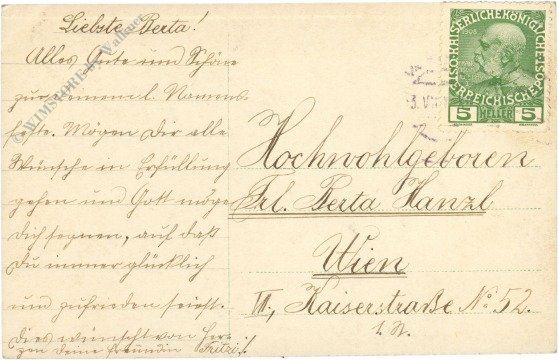 Liebste Berta!
Alles Gute und Schöne
zu deinem l. Namens
feste. Mögen Dir alle
Wünsche in Erfüllung
gehen und Gott möge
Dich segnen, auf daß
du immer glücklich
und zufrieden seiest.
Dies wünscht von Her
zen deine Freundin Fritzi.
© WIMSTORE by Wallner
KAISERLICHE KÖNIGLICHE
ÖSTERREICHISCHE POST
1908
5 HELLER 5
Hochwohlgeboren
Frl. Berta Hanzl
Wien
III., Kaiserstraße No. 52.
1. St.